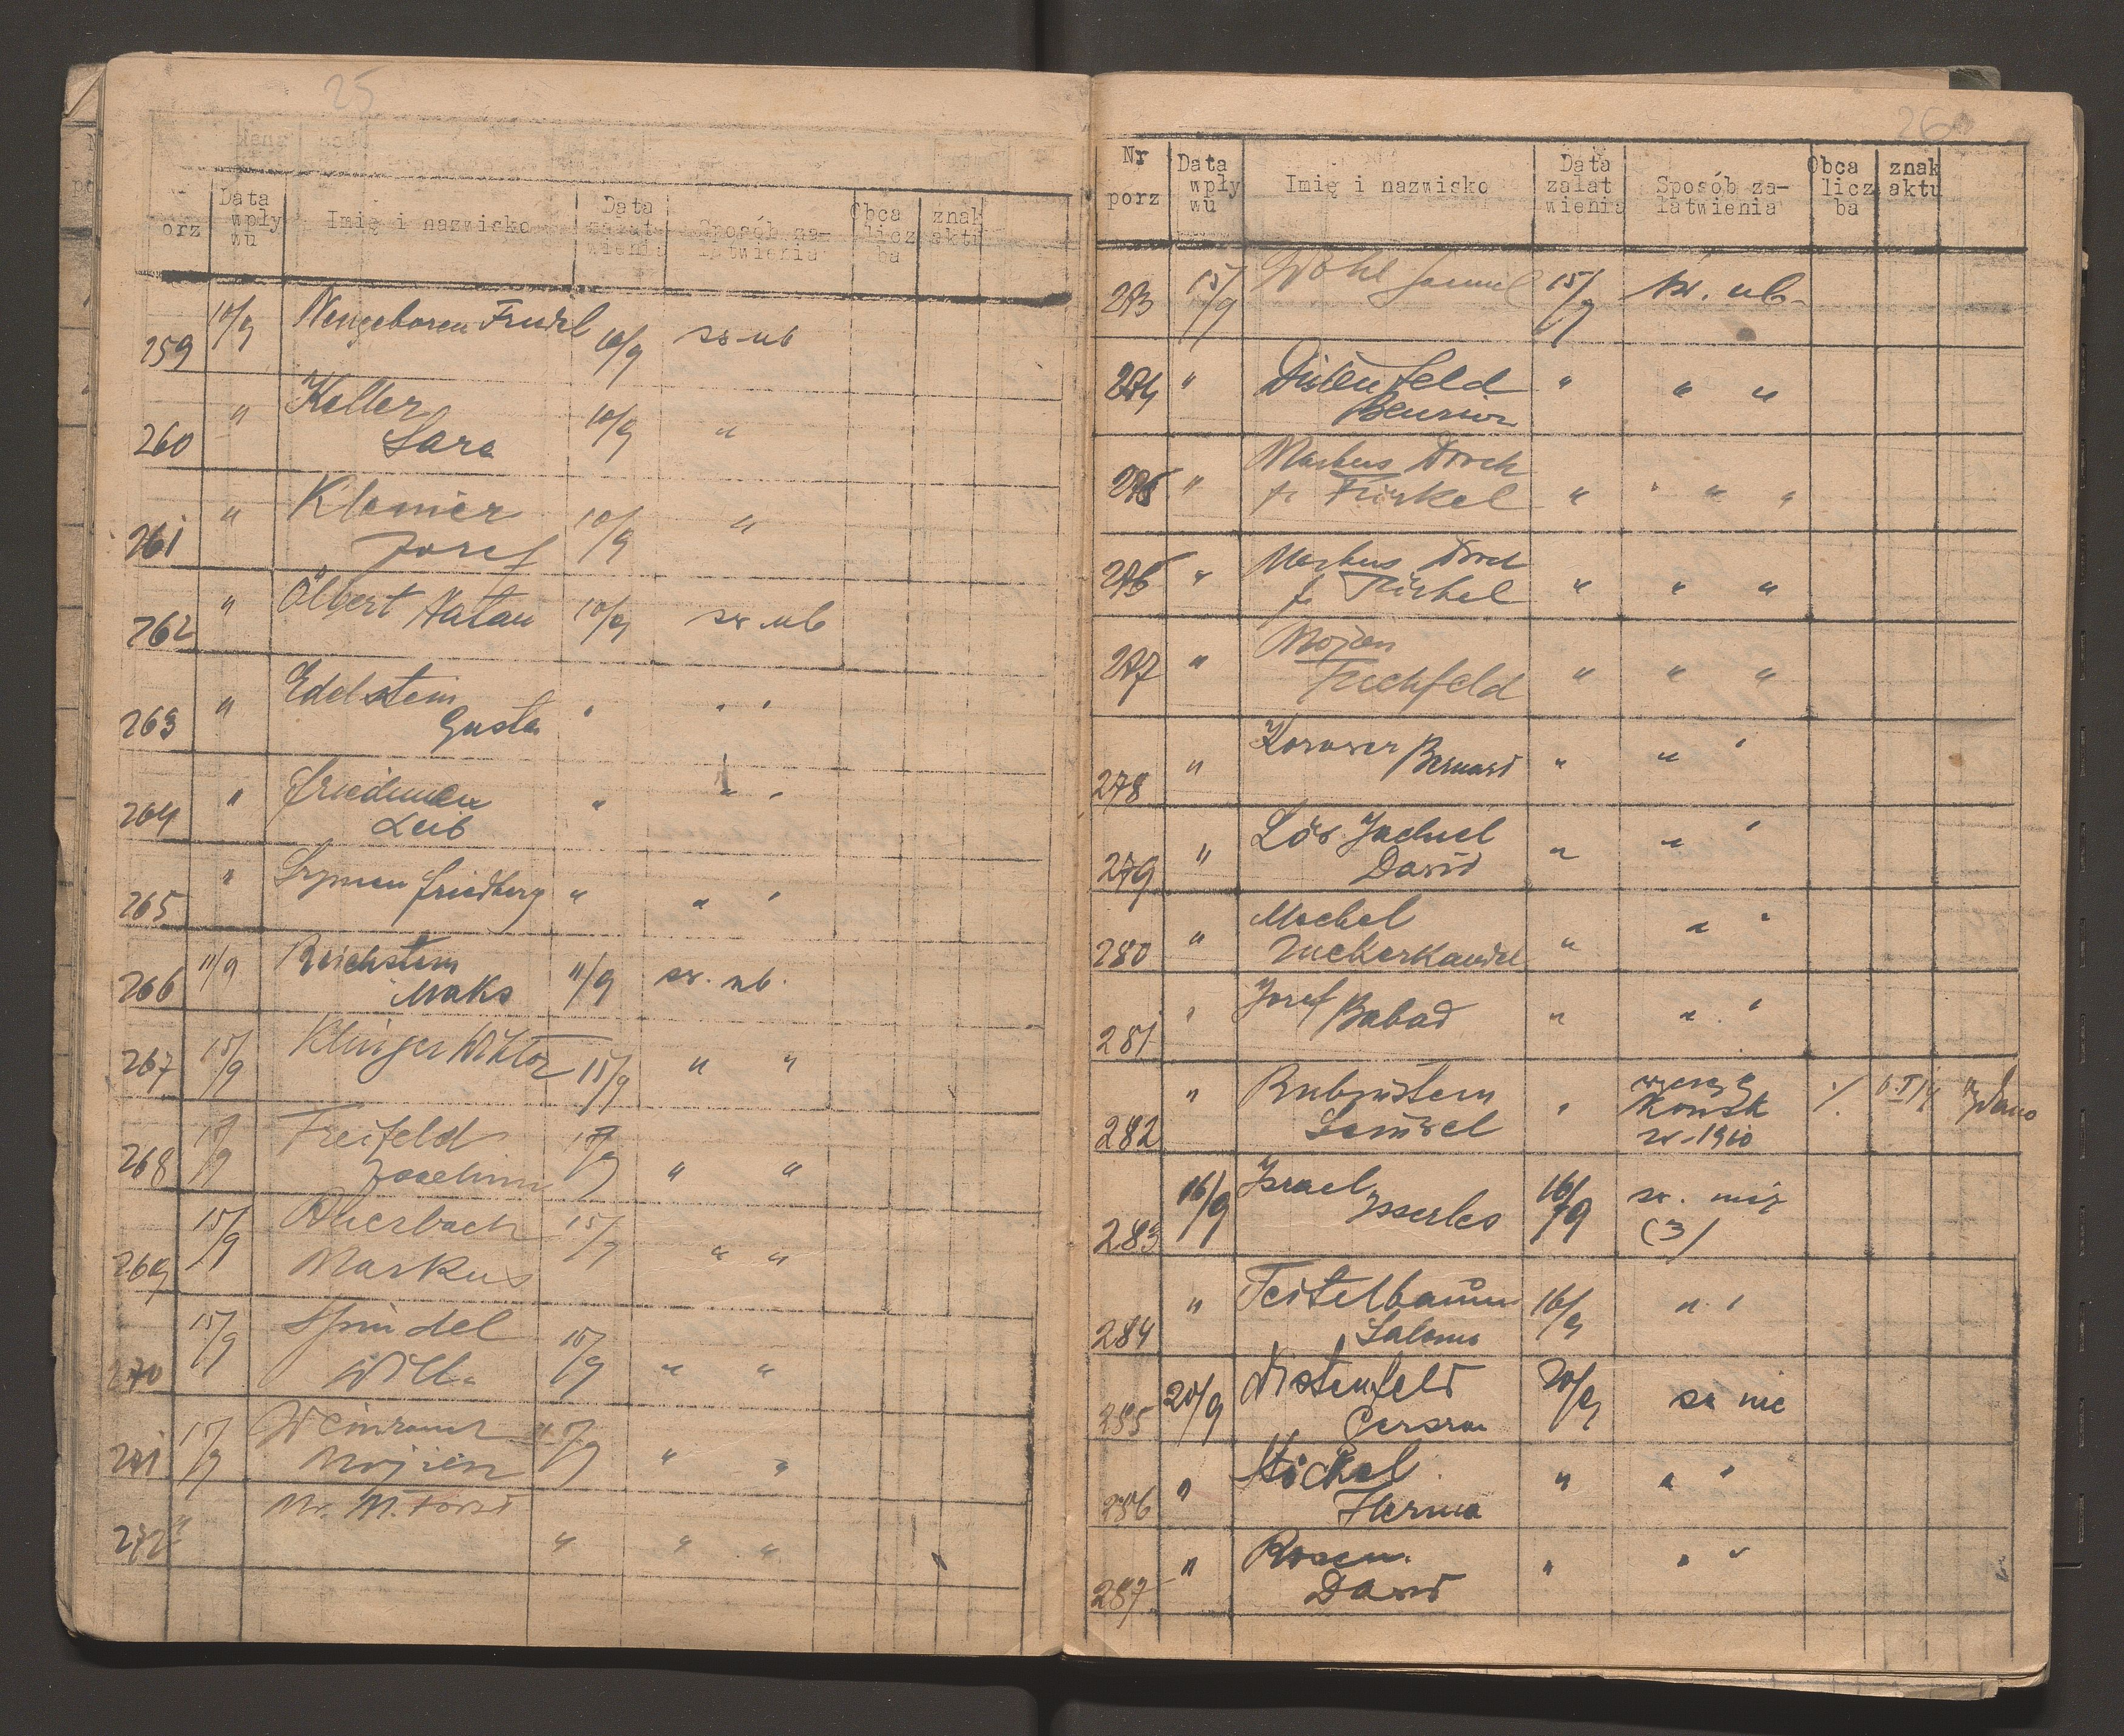 25
orz Data wpły wu Imię i nazwisko Data załat wienia Sposób za- łatwienia Obca licz ba znak aktu
259 10/9 Neugeboren Freidel 10/9 św. ub
260 " Keller Sara 10/9 "
261 " Klamer Josef 10/9 "
262 " Ölbert Natan 10/9 św. ub
263 " Edelstein Gusta " " "
264 " Friedman Leib " " "
265 " Szymon Friedberg " " "
266 11/9 Reichstein Maks 11/9 św. ub.
267 15/9 Klinger Wiktor 15/9 " "
268 15/9 Freifeld Joachim 15/9 " "
269 15/9 Auerbach Markus 15/9 " "
270 15/9 Spindel 15/9 " "
271 15/9 Weinraub Mojżesz 15/9 " "
272 " M. " " "
26
Nr porz Data wpły wu Imię i nazwisko Data załat wienia Sposób za- łatwienia Obca licz ba znak aktu
273 15/9 Wohl Samuel 15/9 św. ub.
274 " Distenfeld Benzion " " "
275 " Markus Dorch f. Türkel " " " "
276 " Markus Dorch f. Türkel " " "
277 " Mojżesz " " "
278 " Bernard " " "
279 " Löw Jachiel Dawid " " "
280 " Mechel Zuckerkandel " " "
281 " Josef Babad " " "
282 " Rubinstein Samuel " 1910 ./. wydano
283 16/9 Israel Isserles 16/9 św. (3)
284 " Teitelbaum Salomo 16/9 " "
285 20/9 Distenfeld Gerson 20/9 św
286 " Stöckel Herma " " "
287 " Rosen Dawid " " "